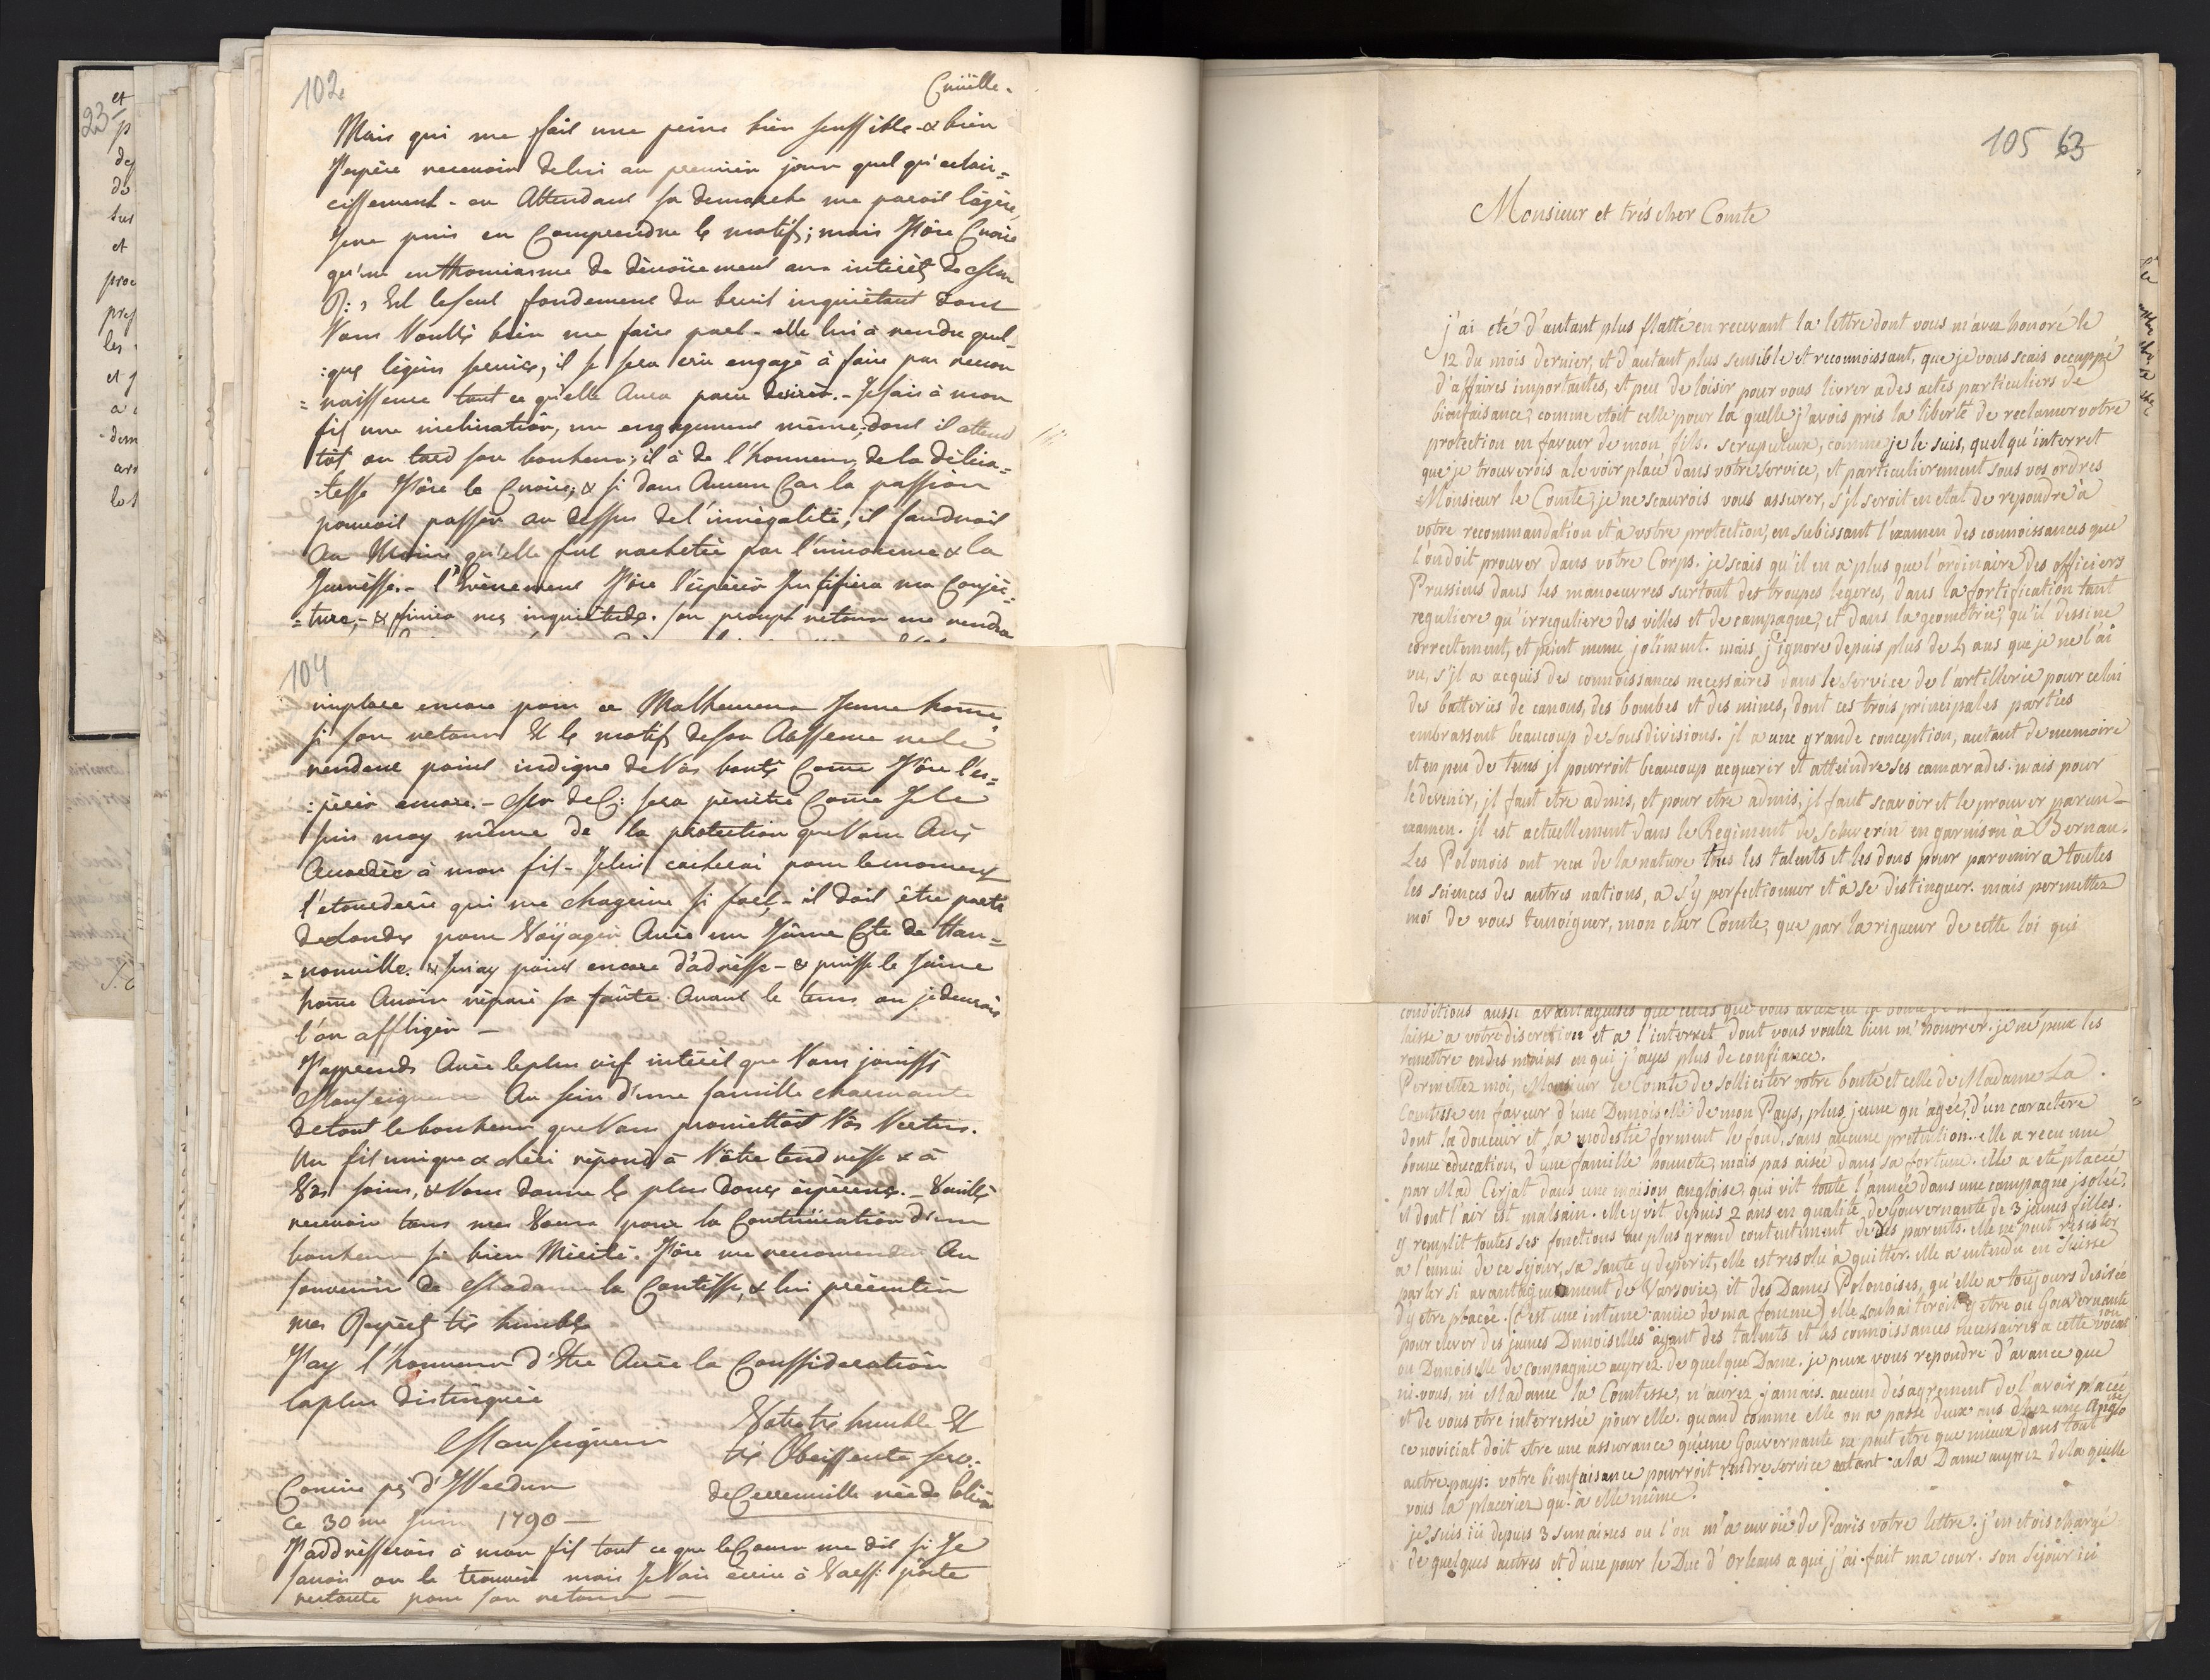 23
et
p
de
do
sus
et
proc
pref
les
et j
a
dem
arr
les
102
Cruëlle.
Mais qui me fait une peine bien senssible & bien
J'espère recevoir de lui au premier jour quel qu'eclair=
cissement - en Attendant sa demarche me paroit légère,
Je ne puis en Comprendre le motif; mais J'ôse Croire
qu'un enthousiasme de dévoüement aux intérêts de
R: Est le seul fondement du bruit inquiétant dont
Vous Voulés bien me faire part - elle lui à rendu quel
:ques légers services, il se sera crû engagé à faire par recon
=naissence tout ce qu'elle Aura parû desirér. - Je sais à mon
fils une inclination, un engagement même, dont il attend
tôt ou tard son bonheur; il à de l'honneur, de la délica=
:tesse J'ôse le Croire; & si dans Aucun Cas la passion
pouvoit passer au dessus de l'innégalité, il faudroit
Au Moins qu'elle fut rachetée par l'innocence & la
Jeunesse. - l'Evènement J'ôse l'éspérér Justifiera ma Conjec=
=ture, - & finira mes inquiétudes. son prompt retour me rendra
104
implore encore pour ce Malheureux Jeune home
si son retour Et le motif de son Abssence ne le
rendent point indigne de Vos bontés Come J'ôse l'es=
:pérér encore. - Mr de C: sera pénétré Come Je le
suis moy même de la protection que Vous Avés
Accordée à mon fils - Je lui cacherai pour le moment
l'étourderie qui me chagrine si fort, - il doit être parti
de Londre pour Voÿager Avec un Jeune Cte de Han=
=nonville. & Je n'ay point encore d'adrèsse - & puisse le Jeune
home Avoir réparé sa faûte Avant le tems ou je devrois
l'en affliger —
J'apprends Avec le plus vif intérêt que Vous jouissés
Monseigneur Au sein d'une famille charmante
de tout le bonheur que Vous promettoit Vos Vertus.
Un fils unique & chéri répond à Vôtre tendresse & à
Vos soins, & Vous donne les plus douces éspérences. - Veuillés
recevoir tous mes Voeux pour la Continüation d'un
bonheur si bien Mérité. J'ôse me recomender Au
souvenir de Madame la Comtesse, & lui présenter
mes Respects très humbles
J'ay l'honneur d'Etre Avec la Conssidération
la plus distinguée
Monseigneur
Votre très humble Et
très Obeissente serv:
de Cerreuville née de
près d'Verdun
ce 30me Juin 1790 —
J'addresserois à mon fils tout ce que le Coeur me dit si Je
savois ou le trouver mais Je Vais écrire à Varss: poste
restante pour son retour —
105 63
Monsieur et très cher Comte
j'ai eté d'autant plus flatté en recevant la lettre dont vous m'avez honoré le
12 du mois dernier, et d'autant plus sensible et reconnoissant, que je vous scais occuppé
d'affaires importantes, et peu de loisir pour vous livrer a des actes particuliers de
bienfaisance, comme etoit celle pour la quelle j'avois pris la liberté de reclamer votre
protection en faveur de mon fils. scrupuleux, comme je le suis, quelqu'interret
que je trouverois a le voir placé dans votre service, et particulierement sous vos ordres
Monsieur le Comte, je ne scaurois vous assurer, s'jl seroit en etat de repondre à
votre recommandation et à votre protection, en subissant l'examen des connoissances que
l'on doit prouver dans votre Corps. je scais qu'il en a plus que l'ordinaire des officiers
Prussiens dans les manoeuvres surtout des troupes legeres, dans la fortification tant
reguliere qu'irreguliere des villes et de campagne, et dans la geometrie, qu'il dessine
correctement, et peint meme joliment. mais j'ignore depuis plus de 4 ans que je ne l'ai
vu, s'jl a acquis des connoissances necessaires dans le service de l'artillerie pour celui
des batteries de canons, des bombes et des mines, dont ces trois principales parties
embrassent beaucoup de sousdivisions. jl a une grande conception, autant de memoire
et en peu de tems jl pourroit beaucoup acquerir et atteindre ses camarades. mais pour
le devenir, jl faut etre admis, et pour etre admis, jl faut scavoir et le prouver par un
examen. jl est actuellement dans le Regiment de Schwerin en garnison à Bernau.
Les Polonois ont recu de la nature tous les talents et les dons pour parvenir a toutes
les sciences des autres nations, a s'y perfectionner et à se distinguer. mais permettez
moi de vous temoigner, mon cher Comte, que par la rigueur de cette loi qui
conditions aussi avantageuses que celles que vous avez eu la bonté
laisse a votre discretion et a l'interret dont vous voulez bien m'honorer. je ne peux les
remettre en des mains en qui j'ayes plus de confiance.
Permettez moi, Monsieur le Comte de solliciter votre bonté et celle de Madame La
Comtesse en faveur d'une Demoiselle de mon Pays, plus jeune qu'agée, d'un caractere
dont la douceur et la modestie forment le fond, sans aucune pretention. elle a recu une
bonne education, d'une famille honnete, mais pas aisée dans sa fortune. elle a eté placée
par Mad Cerjat dans une maison angloise, qui vit toute l'année dans une campagne jsolée,
et dont l'air est malsain. elle y vit depuis 2 ans en qualité de Gouvernante de 3 jeunes filles.
y remplit toutes ses fonctions au plus grand contentement de ses parents. elle ne peut resister
a l'ennui de ce sejour, sa santé y deperit, elle est resolu à quitter. elle a entendu en Suisse
parler si avantageusement de Varsovie, et des Dames Polonoises, qu'elle a toujours desirée
d'y etre placée. (c'est une intime amie de ma femme) elle souhaiteroit y etre ou Gouvernante
pour elever des jeunes Demoiselles ayant des talents et les connoissances necessaires a cette vocation
ou Demoiselle de compagnie auprez de quelque Dame. je peux vous repondre d'avance que
ni vous, ni Madame la Comtesse, n'aurez jamais aucun désagrement de l'avoir placée
et de vous etre interressée pour elle. quand comme elle on a passé deux ans chez une Angloise
ce noviciat doit etre une assurance qu'une Gouvernante ne peut etre que mieux dans tout
autre pays: votre bienfaisance pourroit rendre service autant a la Dame auprez de la quelle
vous la placeriez qu'à elle même.
je suis ici depuis 3 semaines ou l'on m'a envoié de Paris votre lettre. j'en etois chargé
de quelques autres et d'une pour le Duc d'Orleans a qui j'ai fait ma cour. son sejour ici